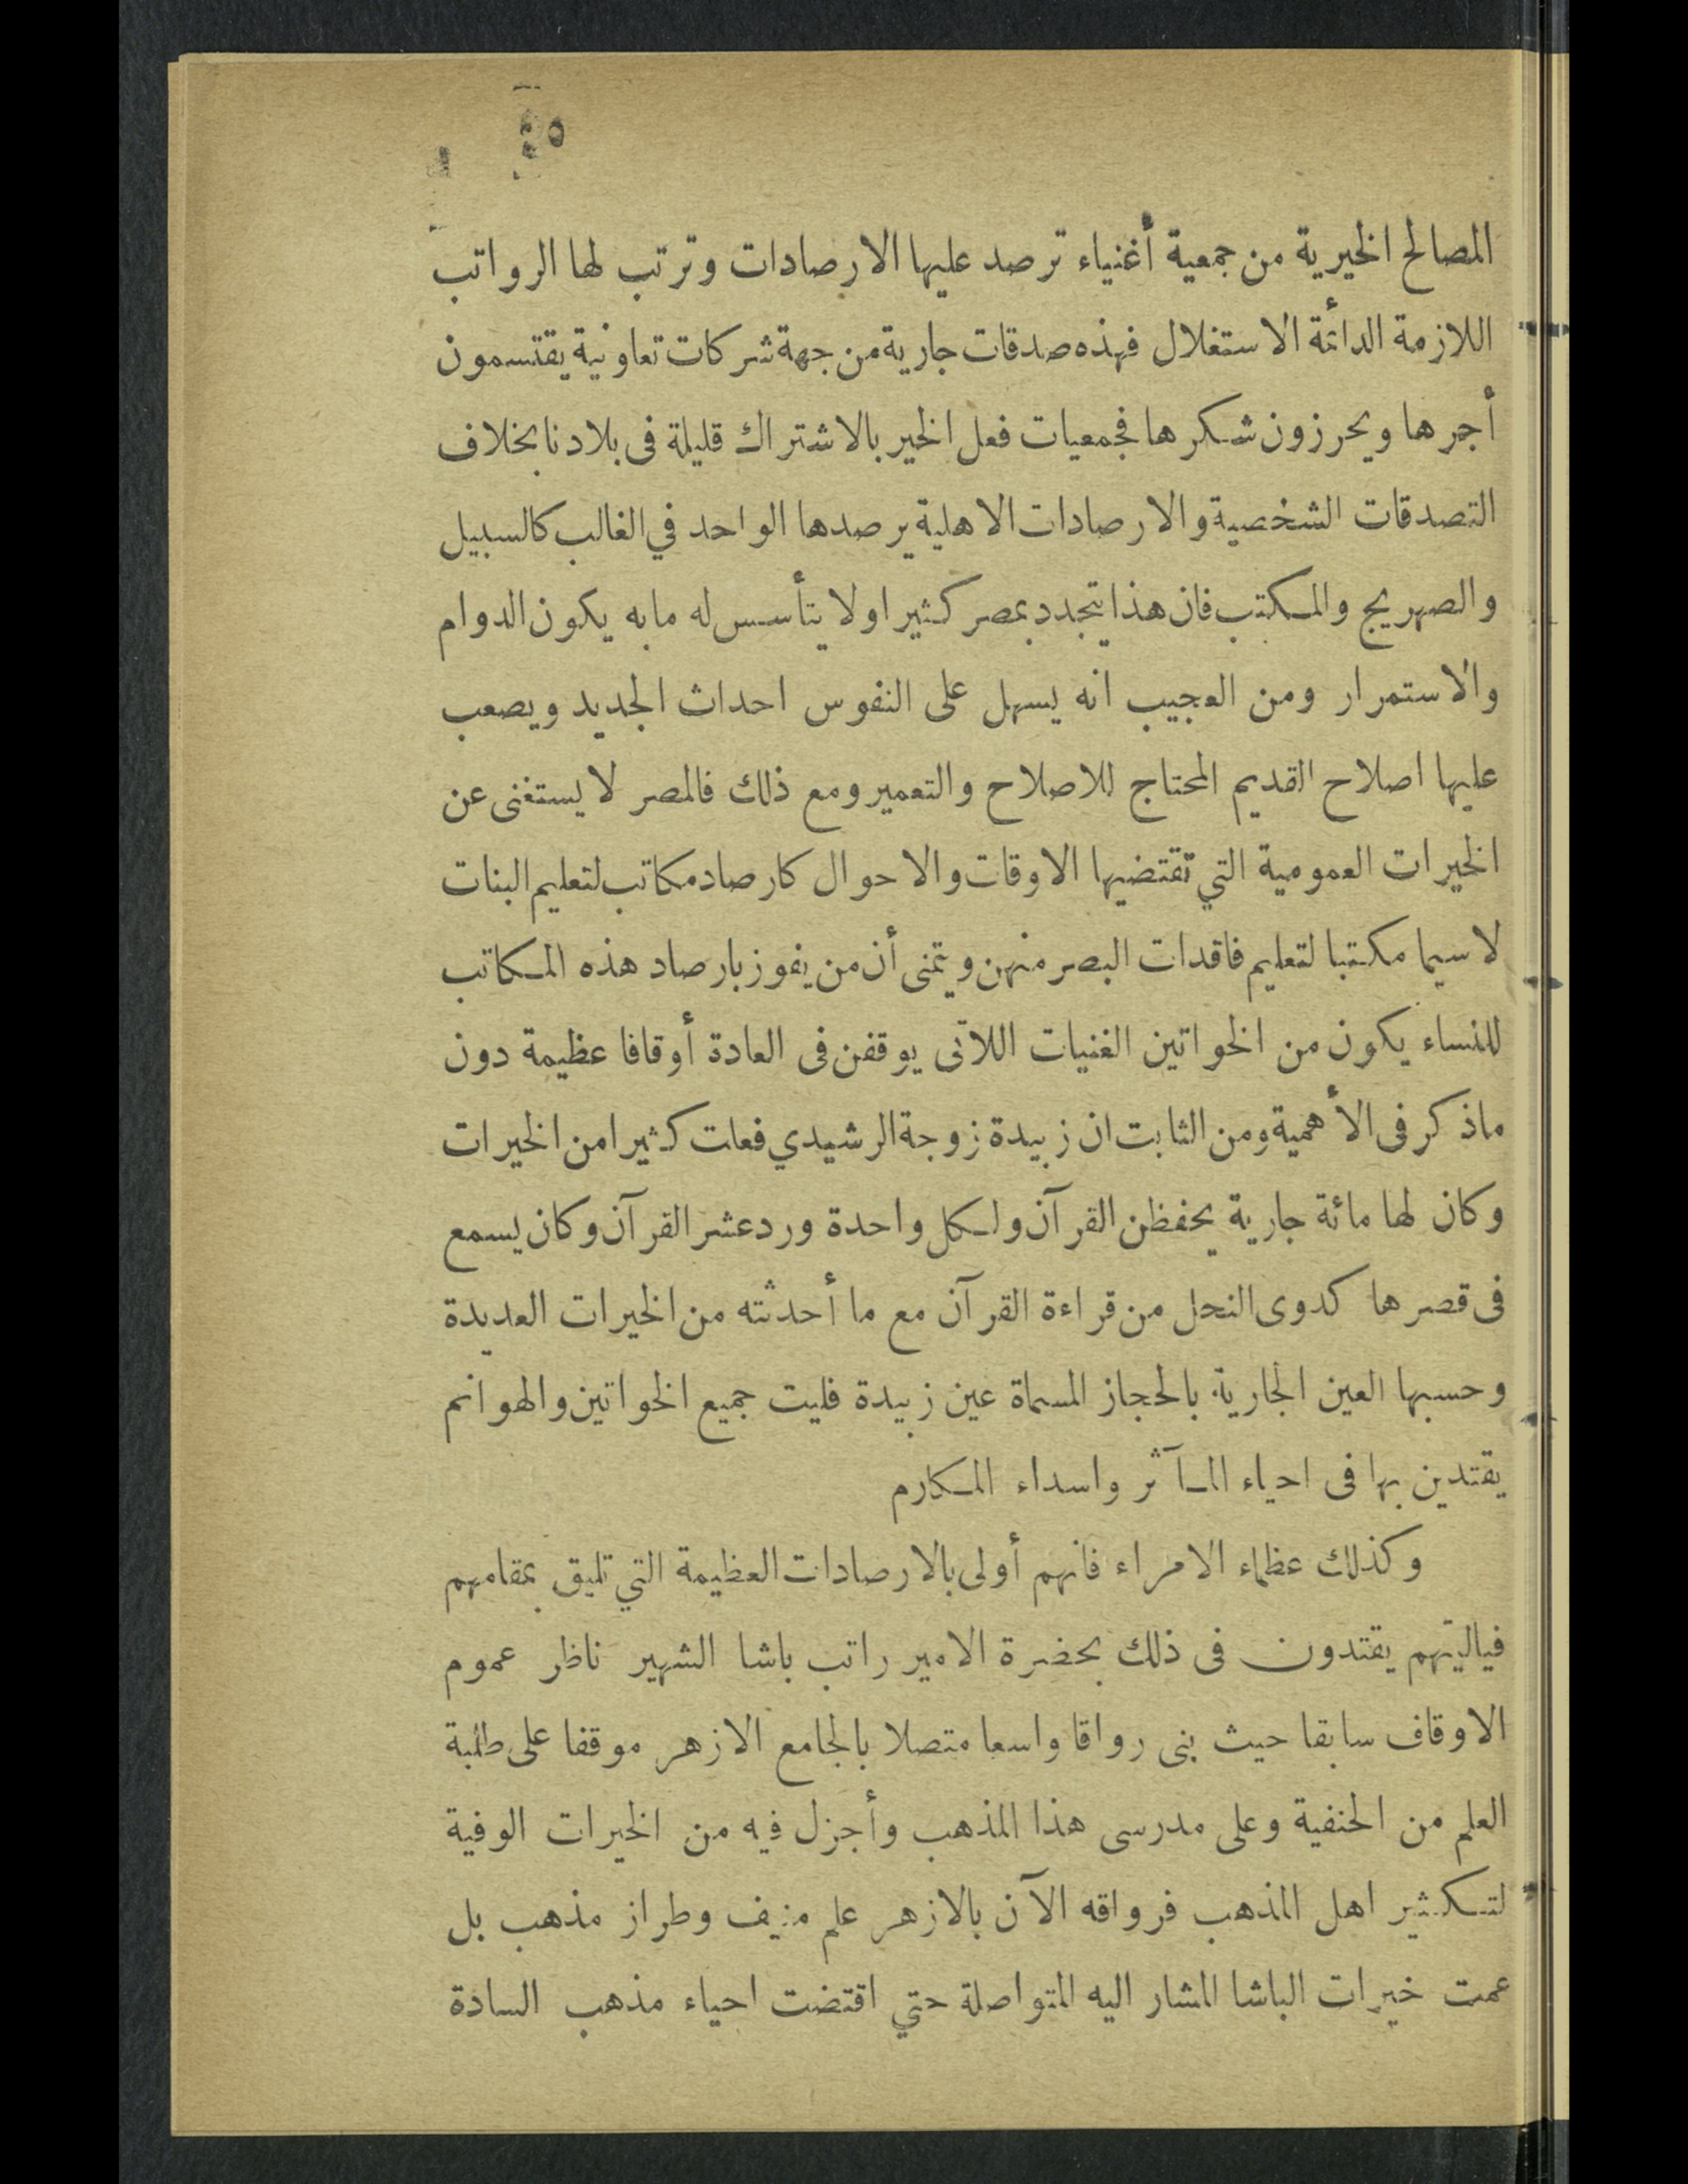 المصالح الخيرية من جمعية أغنياء ترصد عليها الارصادات وترتب لها الرواتب
اللازمة الدائمة الاستغلال فهذه صدقات جارية من جهة شركات تعاونية يقتسمون
أجرها ويحرزون شكرها فجمعيات فعل الخير بالاشتراك قليلة فى بلادنا بخلاف
التصدقات الشخصية والارصادات الاهلية يرصدها الواحد في الغالب كالسبيل
والصهريج والمكتب فان هذا يتجدد بمصر كثيرا ولا يتأسس له ما به يكون الدوام
والاستمرار ومن العجيب انه يسهل على النفوس احداث الجديد ويصعب
عليها اصلاح القديم المحتاج للاصلاح والتعمير ومع ذلك فالمصر لا يستغنى عن
الخيرات العمومية التي تقتضيها الاوقات والاحوال كارصاد مكاتب لتعليم البنات
لاسيما مكتبا لتعليم فاقدات البصر منهن ويتمنى أن من يفوز بارصاد هذه المكاتب
للنساء يكون من الخواتين الغنيات اللاتى يوقفن فى العادة أوقافا عظيمة دون
ماذكر فى الأهمية ومن الثابت ان زبيدة زوجة الرشيدي فعلت كثيرا من الخيرات
وكان لها مائة جارية يحفظن القرآن ولكل واحدة ورد عشر القرآن وكان يسمع
فى قصرها كدوى النحل من قراءة القرآن مع ما أحدثته من الخيرات العديدة
وحسبها العين الجارية بالحجاز المسماة عين زبيدة فليت جميع الخواتين والهوانم
يقتدين بها فى احياء المآثر واسداء المكارم
وكذلك عظماء الامراء فانهم أولى بالارصادات العظيمة التي تليق بمقامهم
فياليتهم يقتدون فى ذلك بحضرة الامير راتب باشا الشهير ناظر عموم
الاوقاف سابقا حيث بنى رواقا واسعا متصلا بالجامع الازهر موقفا على طلبة
العلم من الحنفية وعلى مدرسى هذا المذهب وأجزل فيه من الخيرات الوفية
لتكثير اهل المذهب فرواقه الآن بالازهر علم منيف وطراز مذهب بل
عمت خيرات الباشا المشار اليه المتواصلة حتي اقتضت احياء مذهب السادة